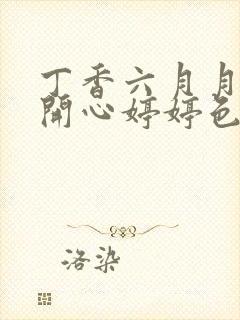 丁香六月月
開心婷婷色
洛染